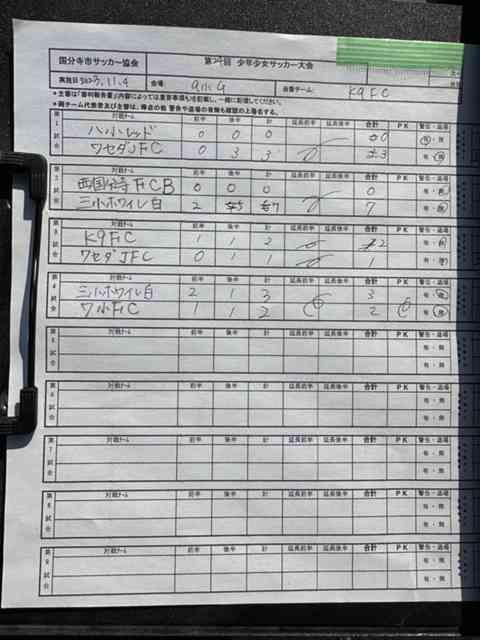 国分寺市サッカー協会 少年少女サッカー大会
実施日 2023.11.4 会場: 主審チーム: K9FC
＊主審は「審判報告書」内容によっては重要事項も記載し、一緒に配信してください。
第1試合 対戦チーム 前半 後半 計 延長前半 延長後半 合計 PK 警告・退場
八小レッド 0 0 0 0 有・無
ワセダJFC 0 3 3 3 有・無
第2試合 対戦チーム 前半 後半 計 延長前半 延長後半 合計 PK 警告・退場
西国分寺FCB 0 0 0 0 有・無
三小ホワイトル白 2 5 7 7 有・無
第3試合 対戦チーム 前半 後半 計 延長前半 延長後半 合計 PK 警告・退場
K9FC 1 1 2 2 有・無
ワセダJFC 0 1 1 1 有・無
第4試合 対戦チーム 前半 後半 計 延長前半 延長後半 合計 PK 警告・退場
2 1 3 3 有・無
ワ小FC 1 1 2 2 有・無
第5試合 対戦チーム 前半 後半 計 延長前半 延長後半 合計 PK 警告・退場
有・無
有・無
第6試合 対戦チーム 前半 後半 計 延長前半 延長後半 合計 PK 警告・退場
有・無
有・無
第7試合 対戦チーム 前半 後半 計 延長前半 延長後半 合計 PK 警告・退場
有・無
有・無
第8試合 対戦チーム 前半 後半 計 延長前半 延長後半 合計 PK 警告・退場
有・無
有・無
第9試合 対戦チーム 前半 後半 計 延長前半 延長後半 合計 PK 警告・退場
有・無
有・無